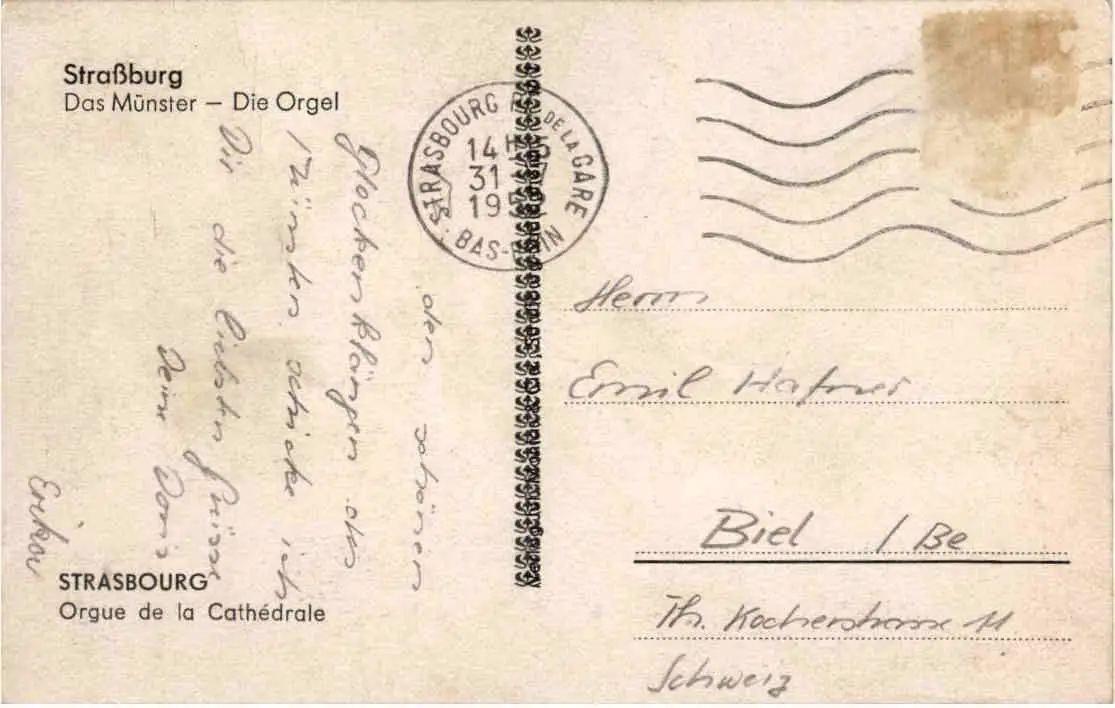 Straßburg
Das Münster – Die Orgel
den schönen
Glockenklängen des
Münsters schicke ich
Dir die liebsten Grüsse
Dein Doris
Erika
STRASBOURG
Orgue de la Cathédrale
STRASBOURG DE LA GARE
14H
31
19
BAS-RHIN
Herrn
Emil Hafner
Biel / Be
Th. Kocherstrasse 11
Schweiz